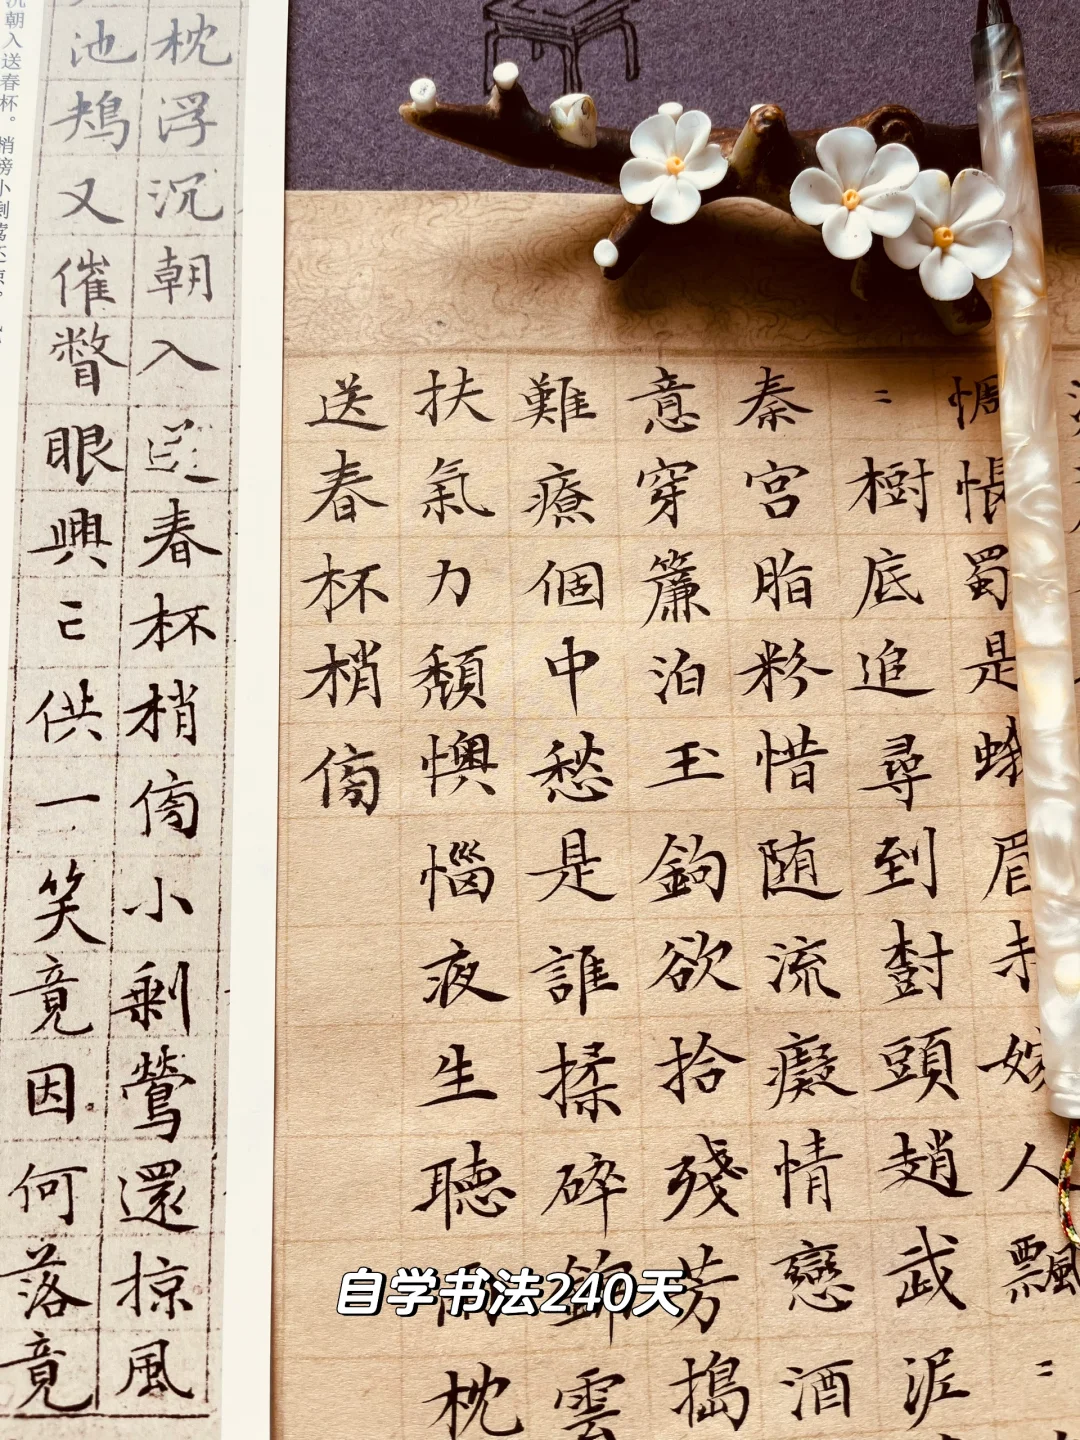 惆悵蜀是蛾眉未嫁人飄=
=樹底追尋到樹頭趙武泥
秦宮脂粉惜随流癡情戀酒
意穿簾泊玉鉤欲拾殘芳搗
難療個中愁是誰揉碎錦雲
扶氣力頹懊惱夜生聽雨枕
送春杯梢傍
枕浮沉朝入送春杯梢傍小剩鶯還掠風
池鴂又催瞥眼興亡供一笑竟因何落竟
沉朝入送春杯。梢傍小剩鶯還掠。
自学书法240天